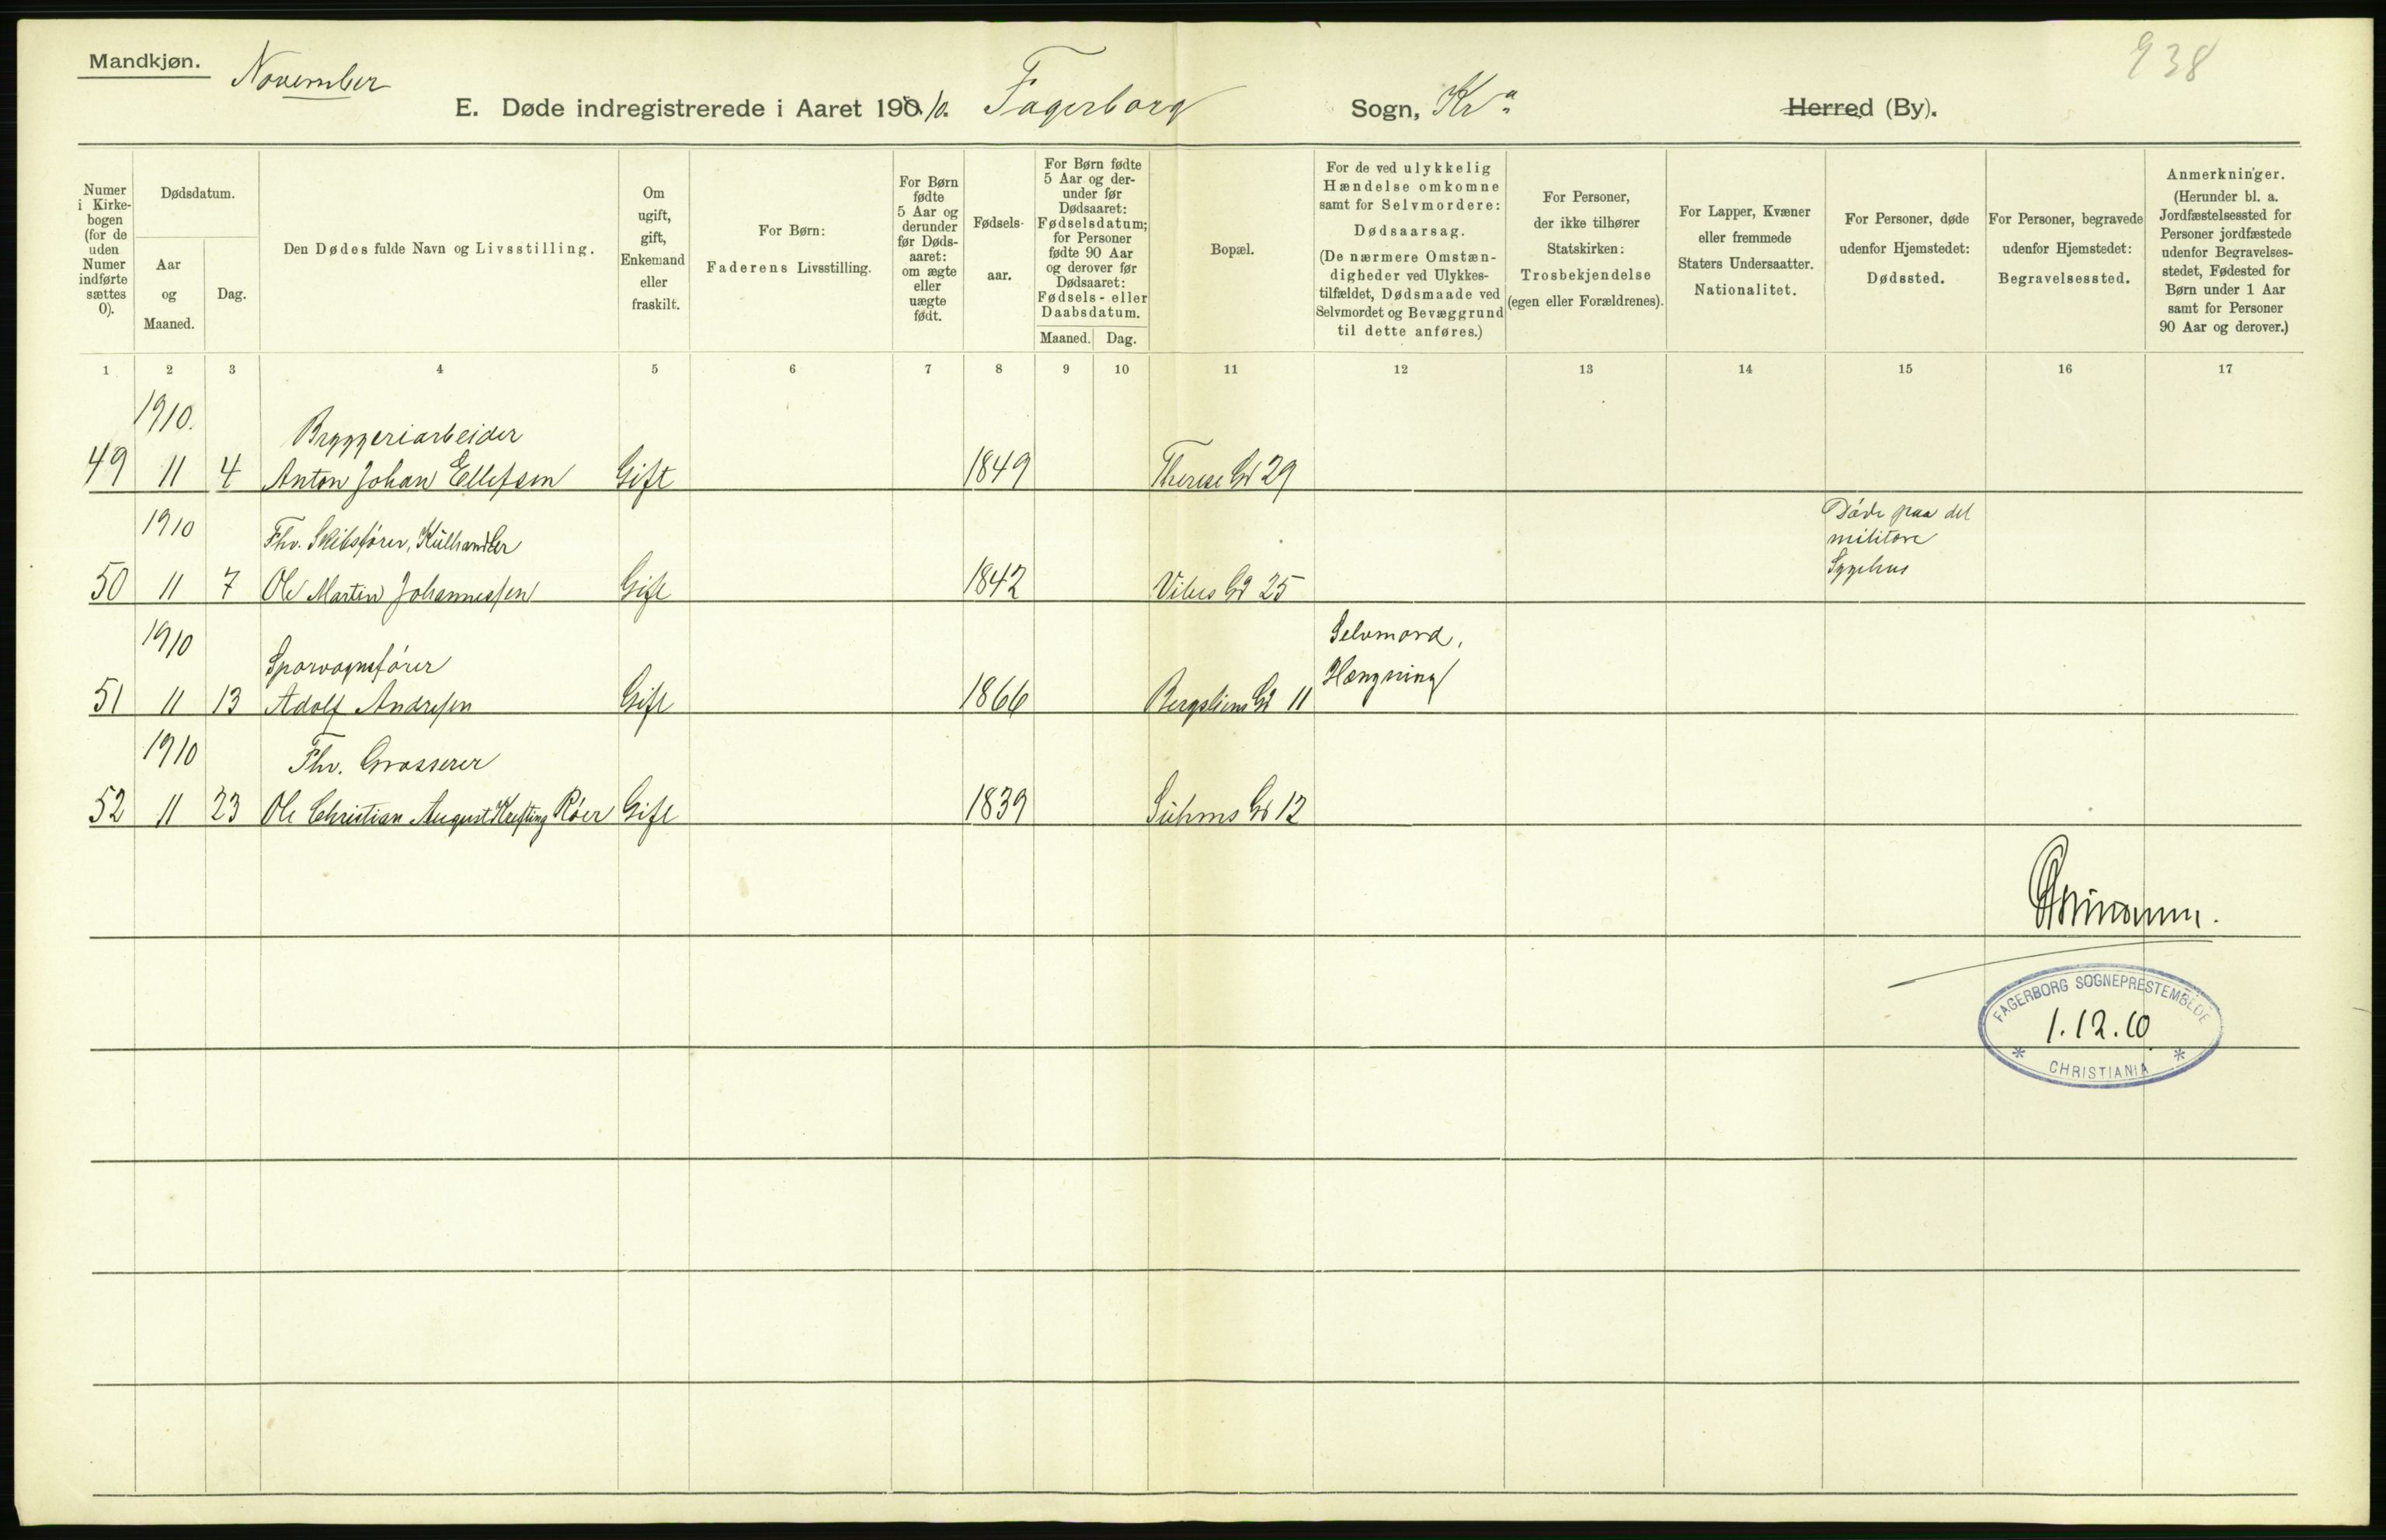 Mandkjøn.
November
938
E. Døde indregistrerede i Aaret 1910. Fagerborg Sogn, Kra Herred (By).
Numer i Kirkebogen (for de uden Numer indførte sættes 0).
Dødsdatum.
Aar og Maaned.
Dag.
Den Dødes fulde Navn og Livsstilling.
Om ugift, gift, Enkemand eller fraskilt.
For Børn: Faderens Livsstilling.
For Børn fødte 5 Aar og derunder før Dødsaaret: om ægte eller uægte født.
Fødselsaar.
For Børn fødte 5 Aar og derunder før Dødsaaret: Fødselsdatum; for Personer fødte 90 Aar og derover før Dødsaaret: Fødsels- eller Daabsdatum.
Maaned. Dag.
Bopæl.
For de ved ulykkelig Hændelse omkomne samt for Selvmordere: Dødsaarsag. (De nærmere Omstændigheder ved Ulykkestilfældet, Dødsmaade ved Selvmordet og Bevæggrund til dette anføres.)
For Personer, der ikke tilhører Statskirken: Trosbekjendelse (egen eller Forældrenes).
For Lapper, Kvæner eller fremmede Staters Undersaatter. Nationalitet.
For Personer, døde udenfor Hjemstedet: Dødssted.
For Personer, begravede udenfor Hjemstedet: Begravelsessted.
Anmerkninger. (Herunder bl. a. Jordfæstelsessted for Personer jordfæstede udenfor Begravelsesstedet, Fødested for Børn under 1 Aar samt for Personer 90 Aar og derover.)
1 2 3 4 5 6 7 8 9 10 11 12 13 14 15 16 17
1910.
Bryggeriarbeider
49 11 4 Anton Johan Ellefsen Gift 1849 Therese Gd 29
1910 Fhv. Skibsfører, Kulhandler Døde paa det
militære
Sygehus
50 11 7 Ole Martin Johannessen Gift 1842 Vibes Gd 25
1910 Selvmord,
Sporvognsfører Hængning
51 11 13 Adolf Andresen Gift 1866 Bergsliens Gd 11
1910 Fhv. Grosserer
52 11 23 Ole Christian August Krefting Röer Gift 1839 Suhms Gd 12
FAGERBORG SOGNEPRESTEMBEDE
1.12.10
* CHRISTIANIA *